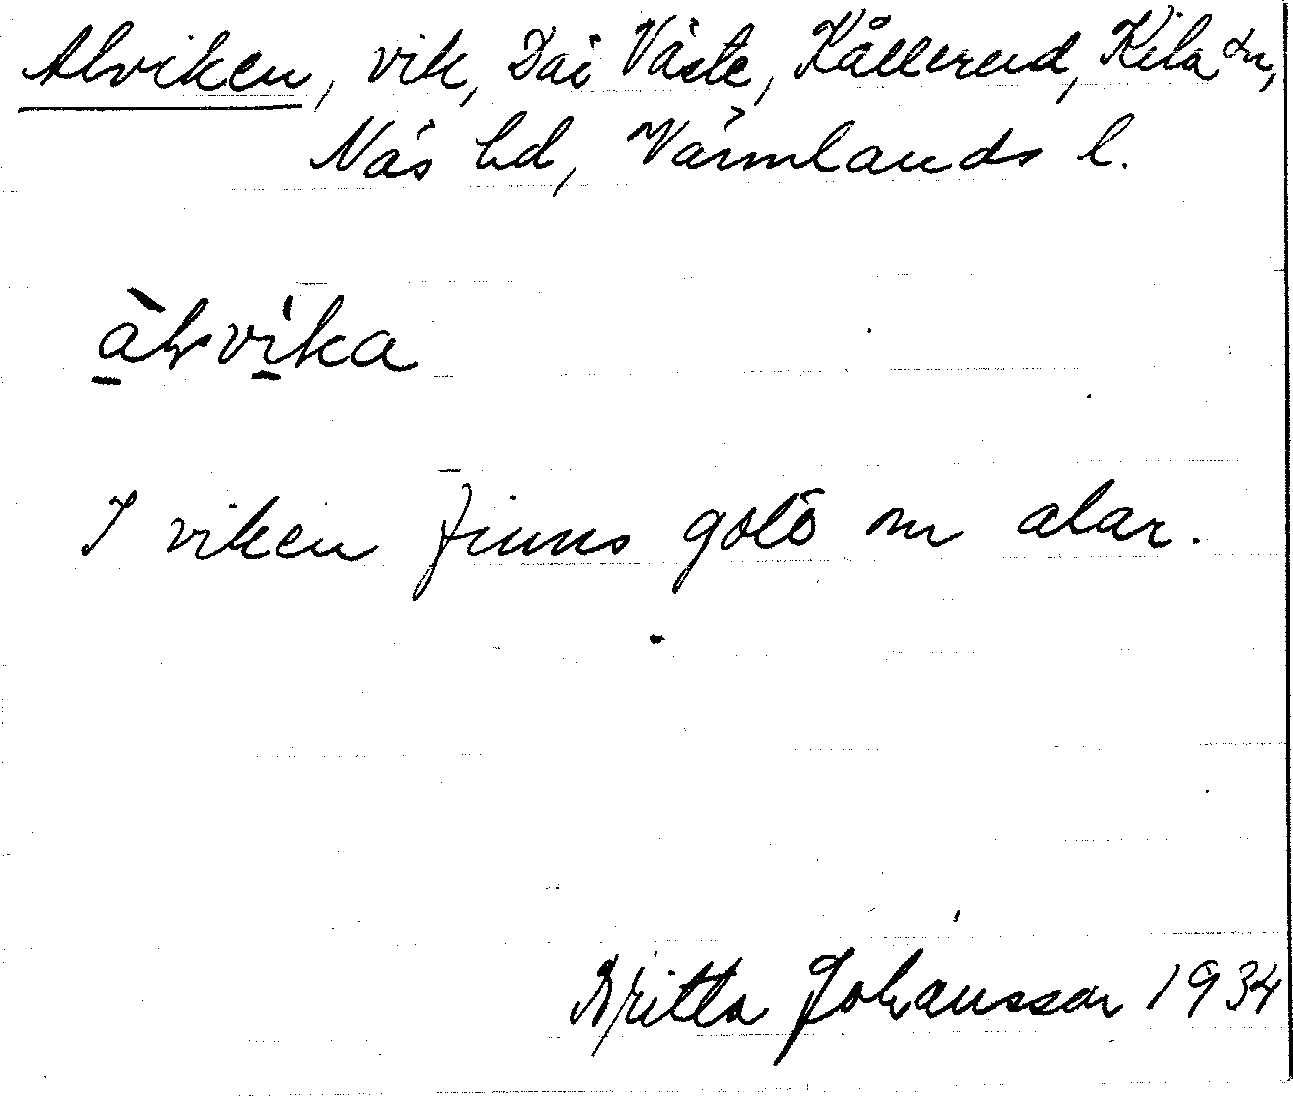 Alviken, vik, Dai Väste, Kållerud, Kila sn,
Näs hd, Värmlands l.
àlvìka
I viken finns gott om alar.
Britta Johansson 1934